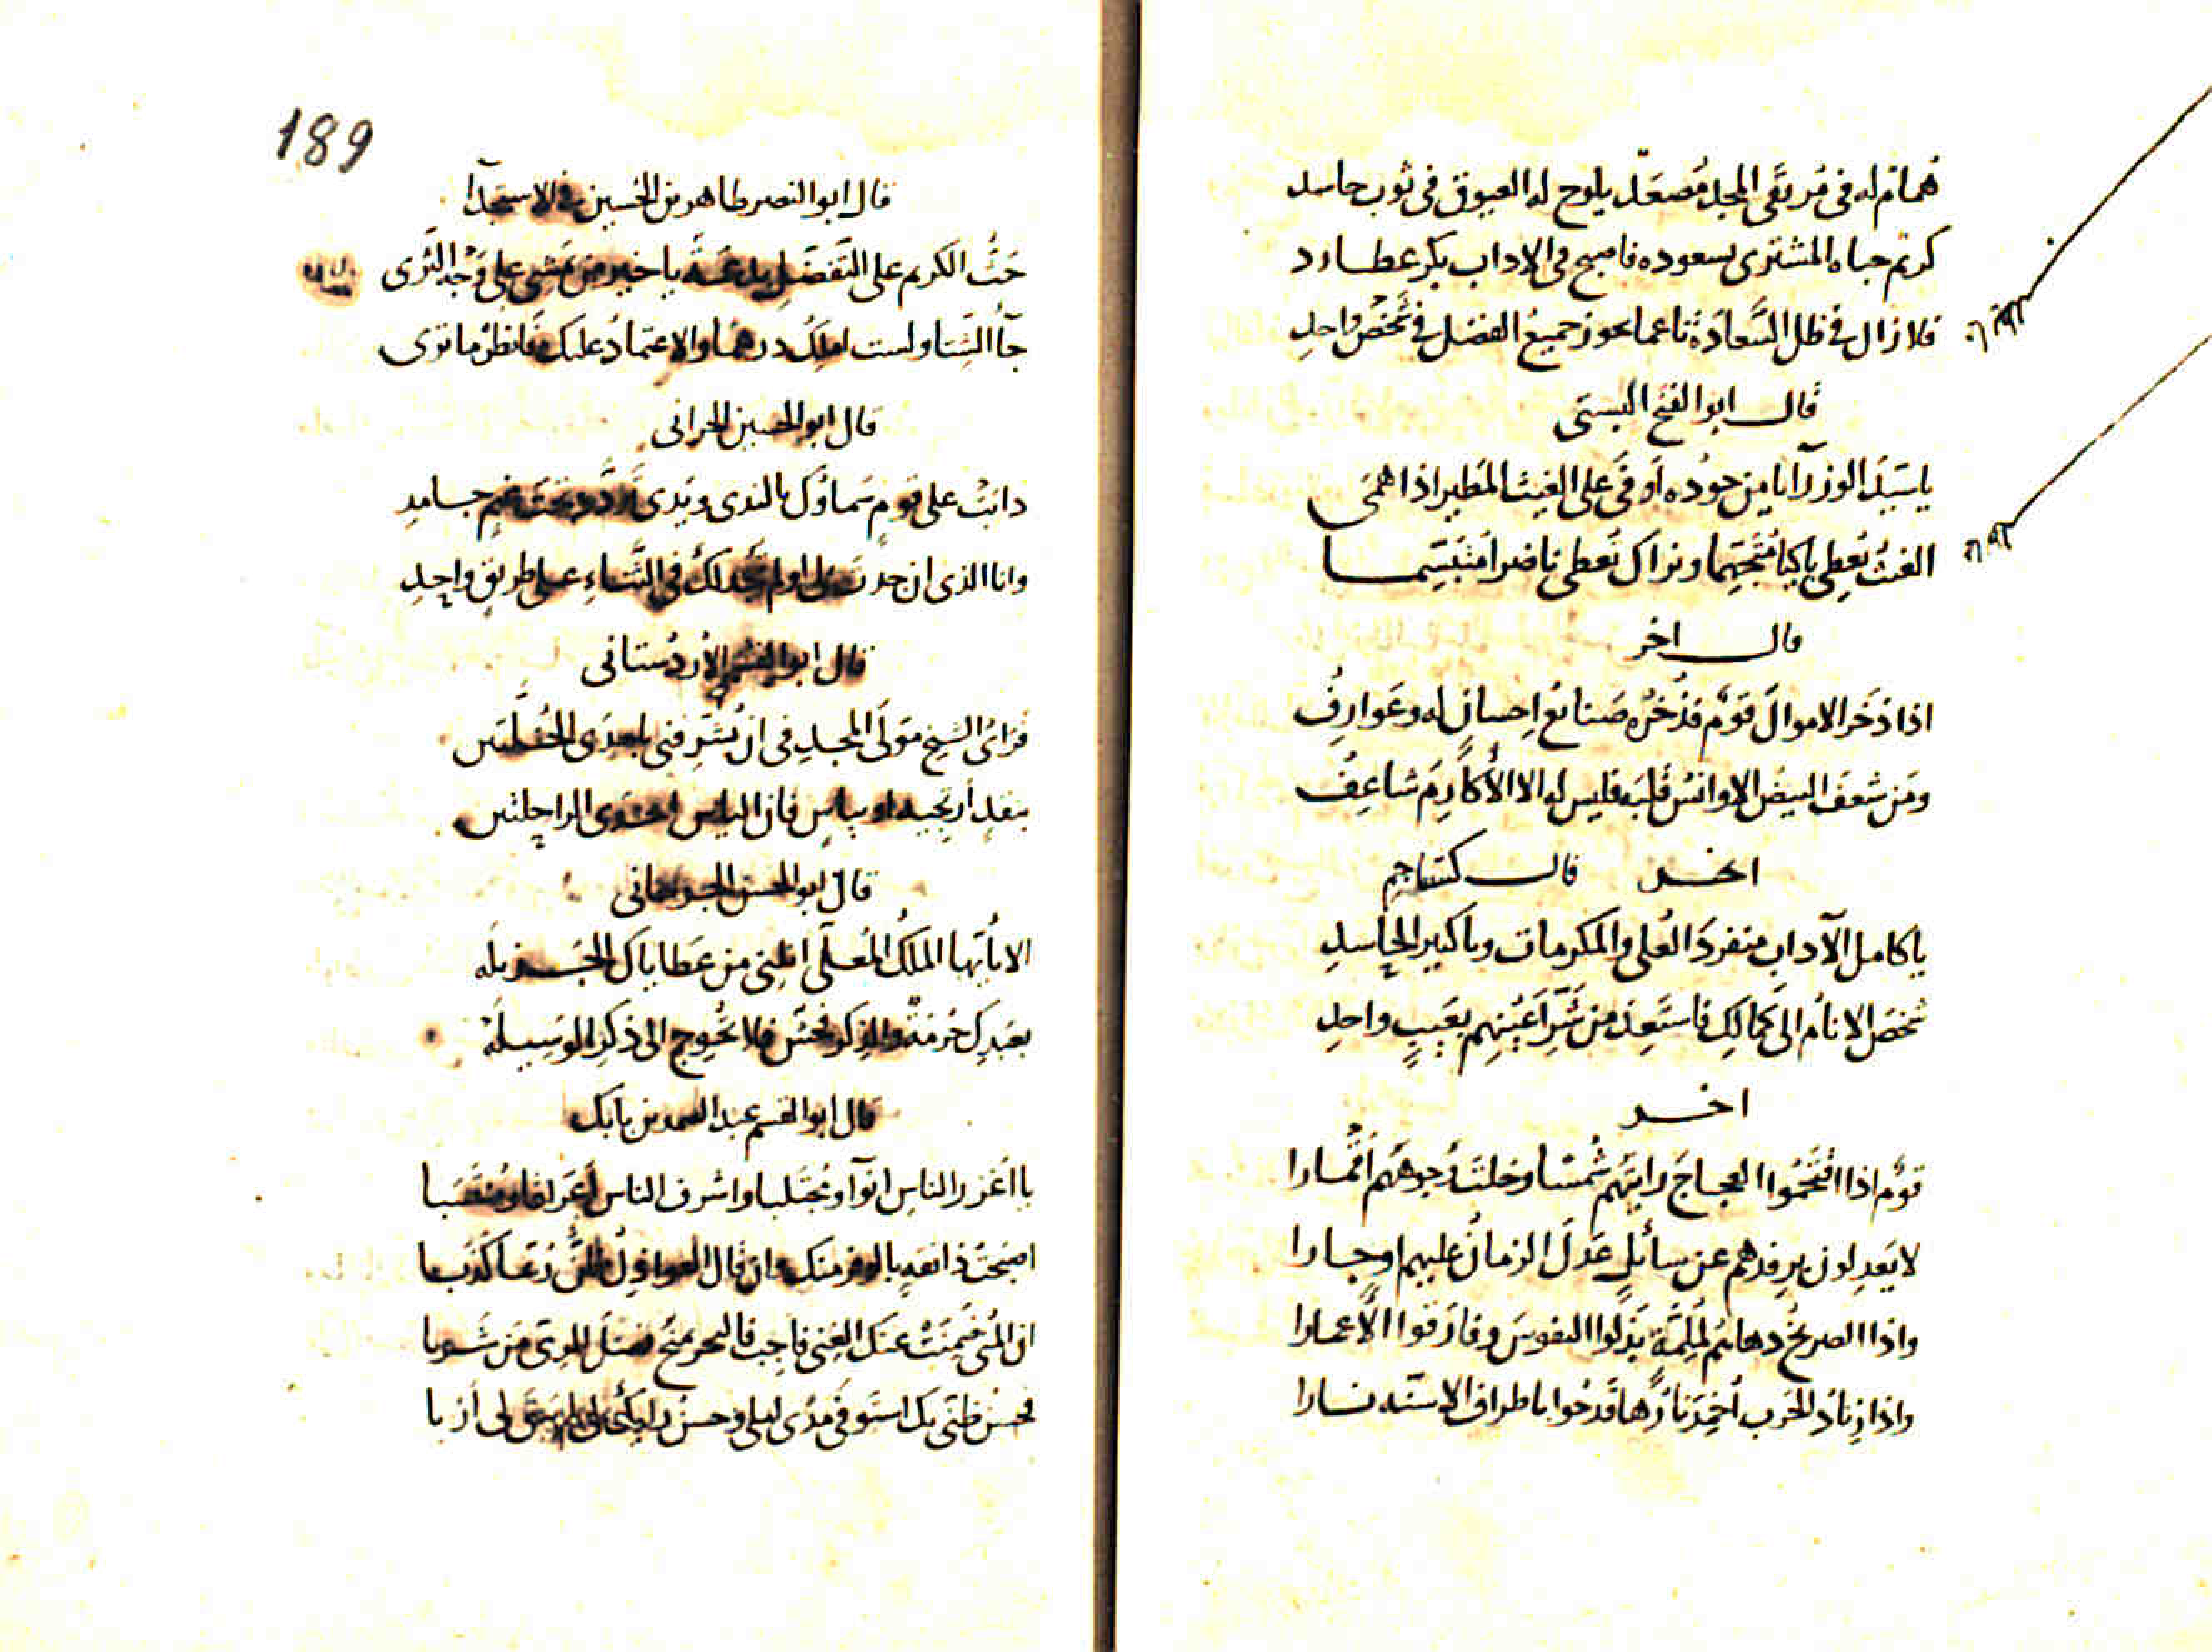 هُمام له فى مُرتقَى المجد مُصعَد يلوح له العيوق فى ثوب حاسد
كريم حباه المشترى بسعوده فاصبح فى الاداب بكر عطارد
فلا زال فى ظل السَّعادَة ناعما يحوز جميعَ الفضل فى شَخْص واحدِ
قال ابو الفتح البستى
يا سَيّدَ الوزرآ يا من جوُده اوفَى على الغيث المَطير اذا همَى
الغيثُ يُعطِى باكيًا مُتجَهِّما ونراك تُعطى ناضرا مُتبَسِّما
قال اخر
اذا ذَخَر الاموالَ قومٌ فذُخرُه صَنايعُ اِحسانٍ له وعَوارِفُ
ومَن شعفَ البيضُ الاوانسُ قَلبَه فليس له الا الأكارِمَ شاعِفُ
اخر قال كشاجم
يا كامل الآدابِ منفردَ العُلى والمكرمات ويا كثير الحاسدِ
شخصَ الانامُ الى كمالِك فاستَعِذ من شَرِّ اَعيُنِهم بعَيبٍ واحدِ
اخر
قومٌ اذا اقتَحَمُوا العجاجَ رايتَهُم شُمسًا وخلتَ وُجوهَهُم اَقمارا
لا يَعدِلون برِفدهم عن سائلٍ عَدلَ الزمانُ عليهم او جارا
واذا الصريخُ دعاهم لمُلِمَّةٍ بَذلوا النفوسَ وفارَقوا الأعمارا
واذا زِنادُ الحَرب اُخمِدَ نارُها قَدحُوا باطراف الاسنّه نارا
189
قال ابو النصر طاهر بن الحسين فى الاستجدآ
حَثُّ الكريم على التَّفضّلِ بدعَةٌ يا خير من مَشى على وَجْهِ الثَّرى
جآ الشِّتا ولست املِكُ درهمًا والاعتمادُ عليك فانظُرْ ما تَرى
قال ابو الحسين الحرانى
دابَتْ على قومٍ سَماؤك بالندى ويَدى تَردَّدُ تحتَ غيمٍ جامدِ
وانا الذى ان جدت لى او لم تجد لك فى الثَّناءِ على طريقٍ واحِدِ
قال ابو القسم الأردُستانى
فرَائُ الشيخ مَولَى المجدِ فى ان يُشَرِّفنى باحدَى الخُلَّتين
بنقدٍ أرتجيه او بياسٍ فان الياسَ احدَى الراحِلتَين
قال ابو الحسن الجرجانى
الا يا اَيّها الملكُ المُعلَّى انلِنى من عَطاياك الجَزيلَه
بعَبدِك حُرمَةٌ والذِكر فحشٌ فلا تُحوِج الى ذكرِ الوَسِيلَهْ
قال ابو القسم عبد الصمد بن بابك
يا اَغزر الناسِ انوآ ومُحتَلبا واشرف الناس أعراقا ومُنتَسَبا
اصبَحتُ ذا ثقةٍ بالوفر منك وان قال العواذِلُ ظَنٌّ رُبَّما كَذَبا
ان المُنى ضَمِنَتْ عنك الغِنى فاجِب فالبحر يمنَحُ فضلَ الرِىِّ مَن شَربا
فحُسنُ ظَنّى بك استَوفَى مَدَى املى وحسنُ رايك لى لم يُبقِ لى أربا